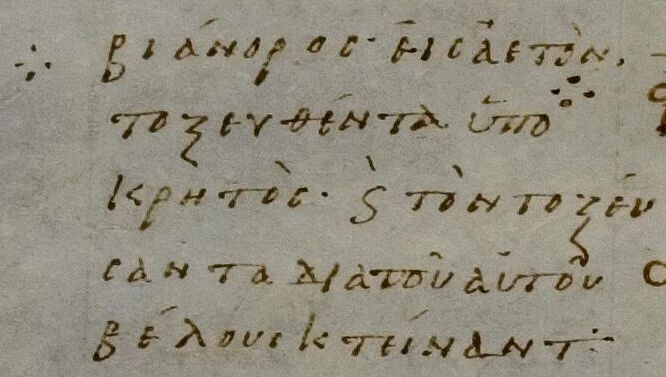 βιάνορος· εἰς ἀετὸν.
τοξευθέντα ὑπὸ
κρητὸς· ϗ τὸν τοξεύ
σαντα διατοῦ αὐτοῦ
βέλους κτείναντ